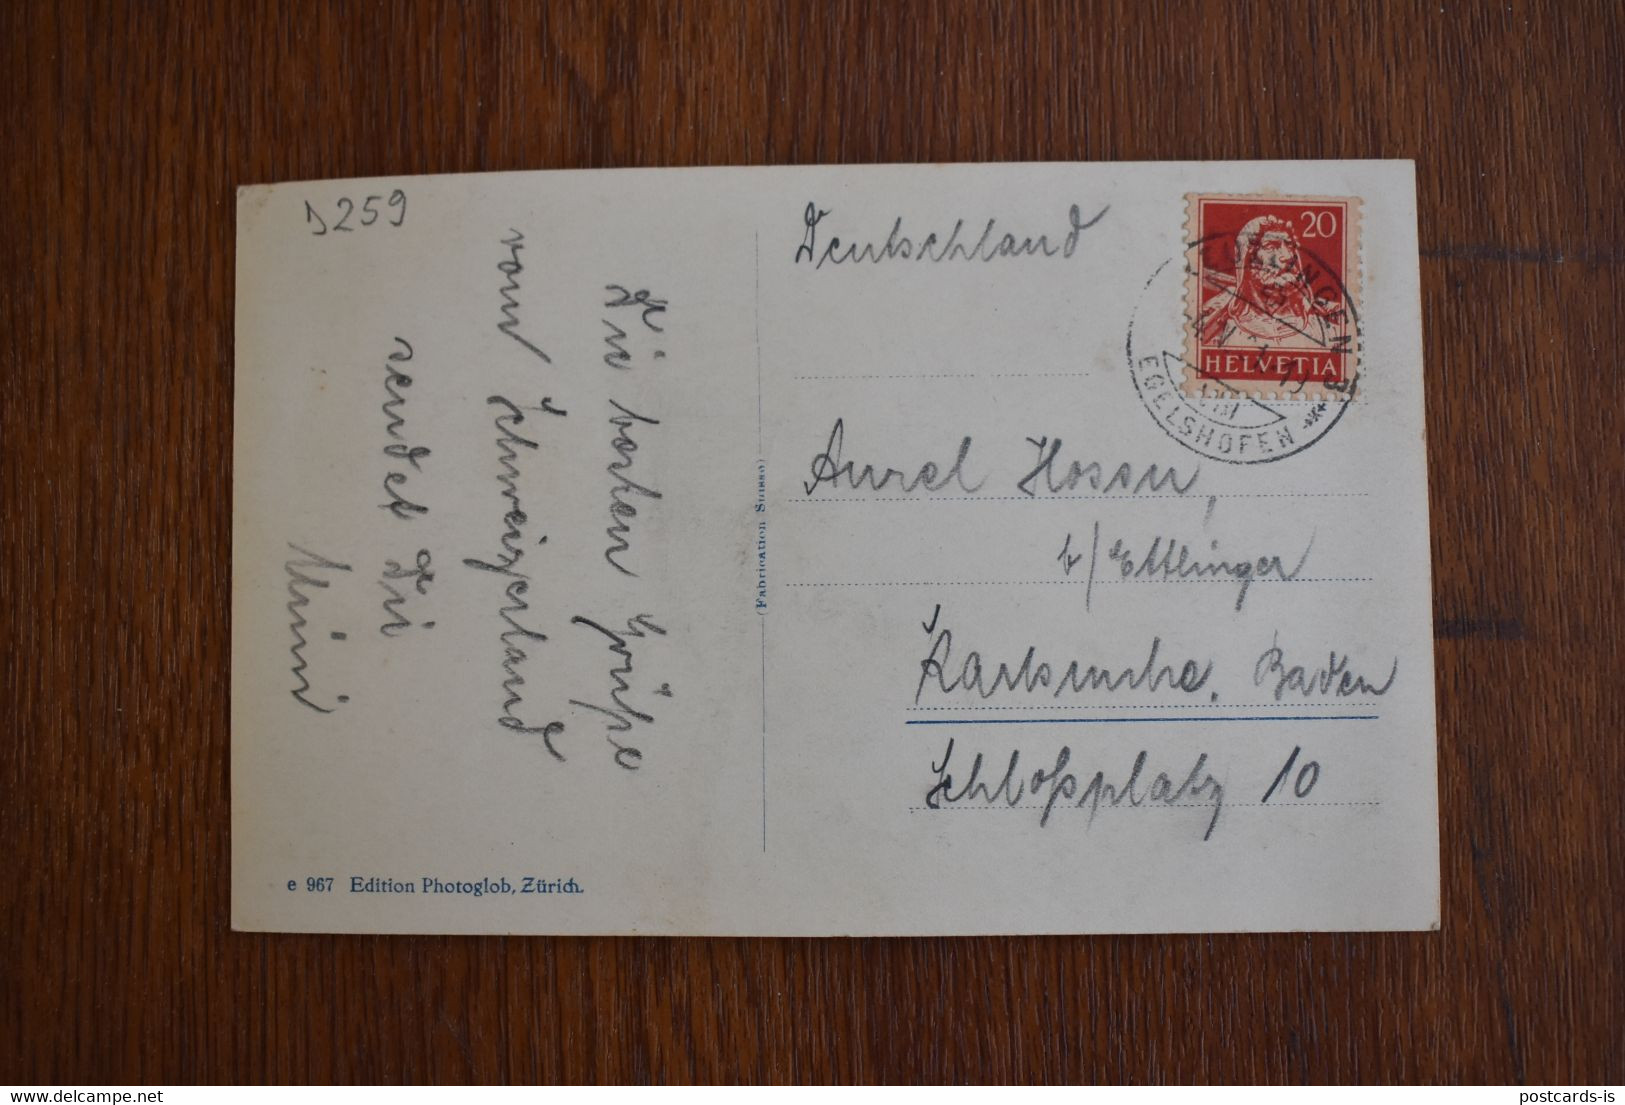 D259
Die besten Grüße
vom Schweizerland
sendet Dir
Mimi
Deutschland
20
HELVETIA
KREUZLINGEN 3
EGELSHOFEN
Aurel Hossu,
b/Ettlinger
Karlsruhe, Baden
Schloßplatz 10
(Fabrication Suisse)
e 967 Edition Photoglob, Zürich.
www.delcampe.net
postcards-is